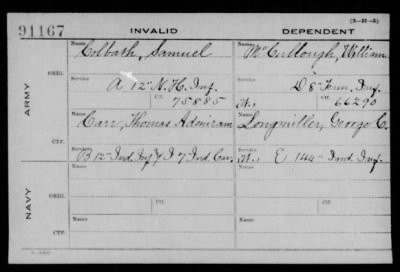 (3-H-3)
91167 INVALID DEPENDENT
ARMY
ORIG.
Name Colbath, Samuel
Name McCullough, William
Service A 12" N.H. Inf.
Service D 8" Tenn. Inf.
Ctf. 75885
W. Ctf. 66290
CTF.
Name Carr, Thomas Adoniram
Name Longmiller, George C.
Service B 12 Ind. Inf. & I 7 Ind. Cav.
Service W. E 144" Ind. Inf.
NAVY
ORIG.
Name
Name
Service
Service
Ctf.
Ctf.
CTF.
Name
Name
Service
Service